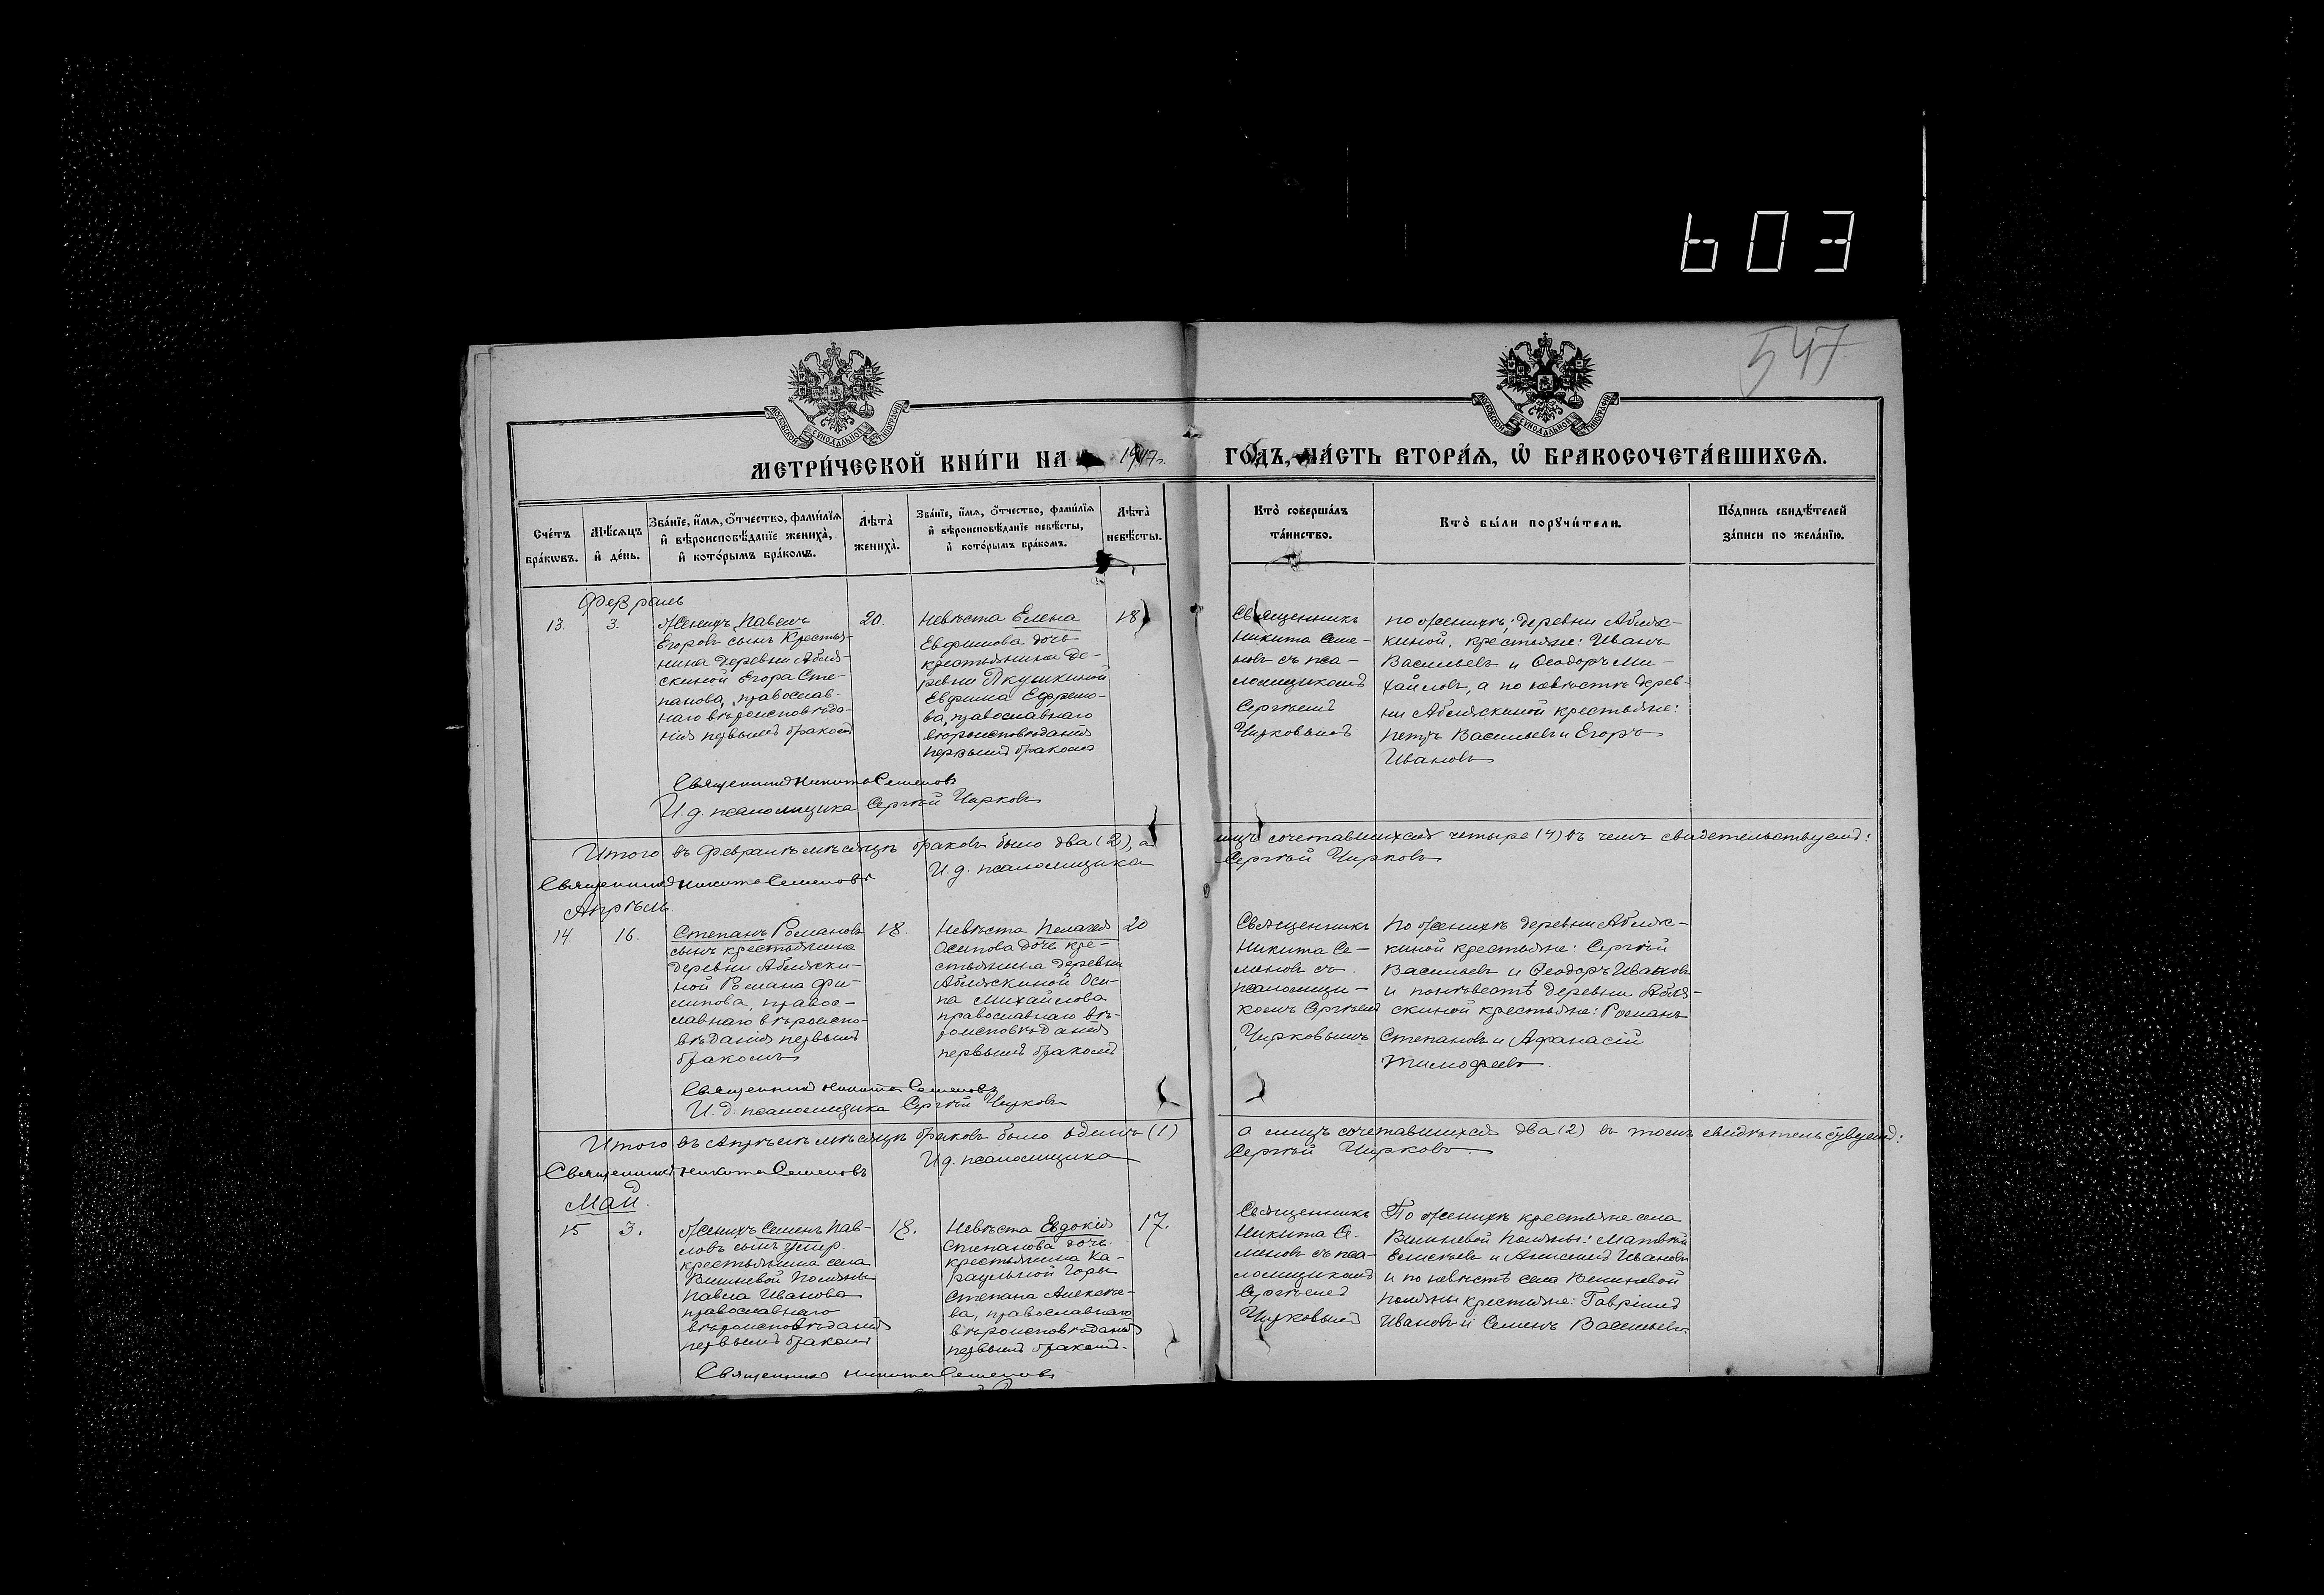 603
547
МОСКОВСКОЙ СѴНОДАЛЬНОЙ ТИПОГРАФІИ
МОСКОВСКОЙ СѴНОДАЛЬНОЙ ТИПОГРАФІИ
МЕТРИ́ЧЕСКОЙ КНИ́ГИ НА 1917г. ГО́ДЪ, ЧА́СТЬ ВТОРА́Ѧ, Ѽ БРАКОСОЧЕТА́ВШИХСѦ.
Сче́тъ бра́кѡвъ.
Мѣ́сѧцъ и҆ де́нь.
Зва́нїе, и҆́мѧ, ѻ҆́тчество, фами́лїѧ и҆ вѣроисповѣ́данїе жениха̀, и҆ кото́рымъ бра́комъ.
Лѣта̀ жениха̀.
Зва́нїе, и҆́мѧ, ѻ҆́тчество, фами́лїѧ и҆ вѣроисповѣ́данїе невѣ́сты, и҆ кото́рымъ бра́комъ.
Лѣта̀ невѣ́сты.
Кто̀ соверша́лъ та́инство.
Кто̀ бы́ли порꙋчи́тели.
По́дпись свидѣ́телей за́писи по жела́нїю.
Февраль
13.
3.
Женихъ Павелъ
Егоровъ сынъ Крестья-
нина деревни Абляз-
скиной Егора Сте-
панова, православ-
наго вѣроисповѣда-
нія первымъ бракомъ
20.
Невѣста Елена
Евфимова дочь
крестьянина де-
ревни Якушкиной
Евфима Ефремо-
ва, православнаго
вѣроисповѣданія
первымъ бракомъ
18
Священникъ
Никита Семе-
новъ съ пса-
ломщикомъ
Сергѣемъ
Чирковымъ
по женихѣ, деревни Абляс-
киной, крестьяне: Иванъ
Васильевъ и Ѳеодоръ Ми-
хайловъ, а по невѣстѣ дерев-
ни Абляскиной крестьяне:
Петръ Васильевъ и Егоръ
Ивановъ
Священникъ Никита Семеновъ
И.д. псаломщика Сергѣй Чирковъ
Итого въ Февралѣ мѣсяцѣ браковъ было два (2), а лицъ сочетавшихся четыре (4) въ чемъ свидетельствуемъ:
Священникъ Никита Семеновъ И.д. псаломщика Сергѣй Чирковъ
Апрѣль
14.
16.
Степанъ Романовъ
сынъ крестьянина
деревни Абляски-
ной Романа Фи-
липова, правос-
лавнаго вѣроиспо-
вѣданія первымъ
бракомъ
18.
Невѣста Пелагея
Осипова дочь кре-
стьянина деревни
Абляскиной Оси-
па Михайлова
православнаго вѣ-
роисповѣданія
первымъ бракомъ
20
Священникъ
Никита Се-
меновъ съ
псаломщи-
комъ Сергѣемъ
Чирковымъ
По женихѣ деревни Абляс-
киной крестьяне: Сергѣй
Васильевъ и Ѳеодоръ Ивановъ
и по невѣстѣ деревни Абля-
скиной крестьяне: Романъ
Степановъ и Афанасій
Тимофеевъ.
Священникъ Никита Семеновъ
И.д. псаломщика Сергѣй Чирковъ
Итого въ Апрѣлѣ мѣсяцѣ браковъ было одинъ (1) а лицъ сочетавшихся два (2) въ томъ свидѣтельствуемъ:
Священникъ Никита Семеновъ И.д. псаломщика Сергѣй Чирковъ
Май.
15
3.
Женихъ Семенъ Пав-
ловъ сынъ умер.
крестьянина села
Вишневой Поляны
Павла Иванова
православнаго
вѣроисповѣданія
первымъ бракомъ
18.
Невѣста Евдокія
Степанова дочь
крестьянина Ка-
раульной Горы
Степана Алексѣе-
ва, православнаго
вѣроисповѣданія
первымъ бракомъ.
17.
Священникъ
Никита Се-
меновъ съ пса-
ломщикомъ
Сергѣемъ
Чирковымъ
По женихѣ крестьяне села
Вишневой Поляны: Матвѣй
Елисѣевъ и Анисимъ Ивановъ
и по невѣстѣ села Вишневой
Поляны крестьяне: Гавріилъ
Ивановъ и Семенъ Васильевъ.
Священникъ Никита Семеновъ